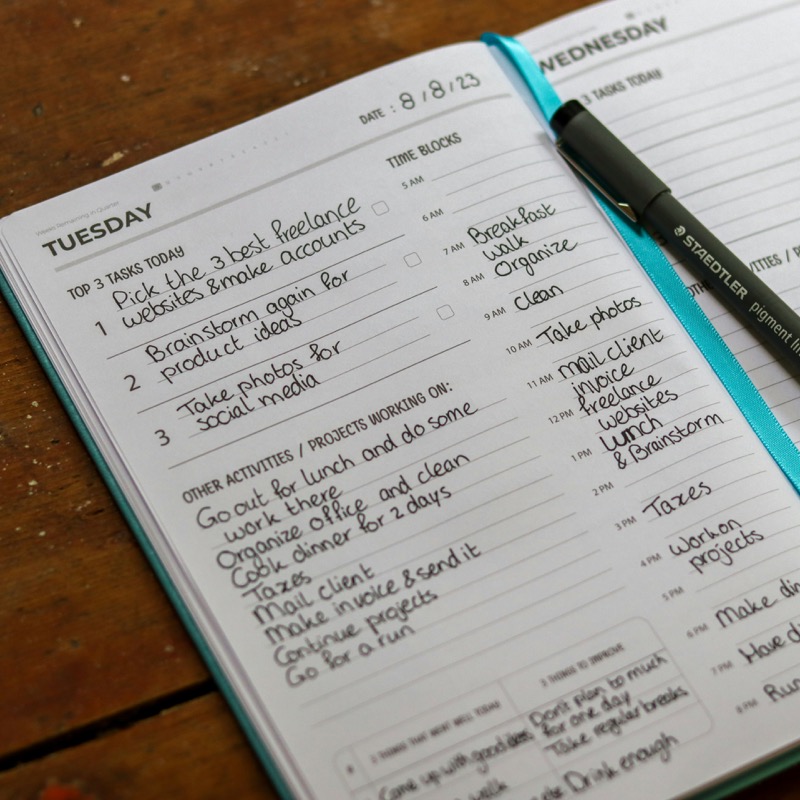 Weeks Remaining in Quarter
TUESDAY
DATE : 8/8/23
TOP 3 TASKS TODAY
1 Pick the 3 best freelance
websites & make accounts
2 Brainstorm again for
product ideas
3 Take photos for
social media
OTHER ACTIVITIES / PROJECTS WORKING ON:
Go out for lunch and do some
work there
Organize office and clean
Cook dinner for 2 days
Taxes
Mail client
Make invoice & send it
Continue projects
Go for a run
3 THINGS THAT WENT WELL TODAY
Came up with good ideas
walk
3 THINGS TO IMPROVE
Don't plan to much
for one day
Take regular breaks
Drink enough
TIME BLOCKS
5 AM
6 AM
7 AM Breakfast
Walk
8 AM Organize
9 AM Clean
10 AM Take photos
11 AM Mail client
invoice
12 PM freelance
websites
1 PM Lunch
& Brainstorm
2 PM
3 PM Taxes
4 PM Work on
projects
5 PM
6 PM Make
7 PM Have
8 PM
WEDNESDAY
3 TASKS TODAY
STAEDTLER pigment